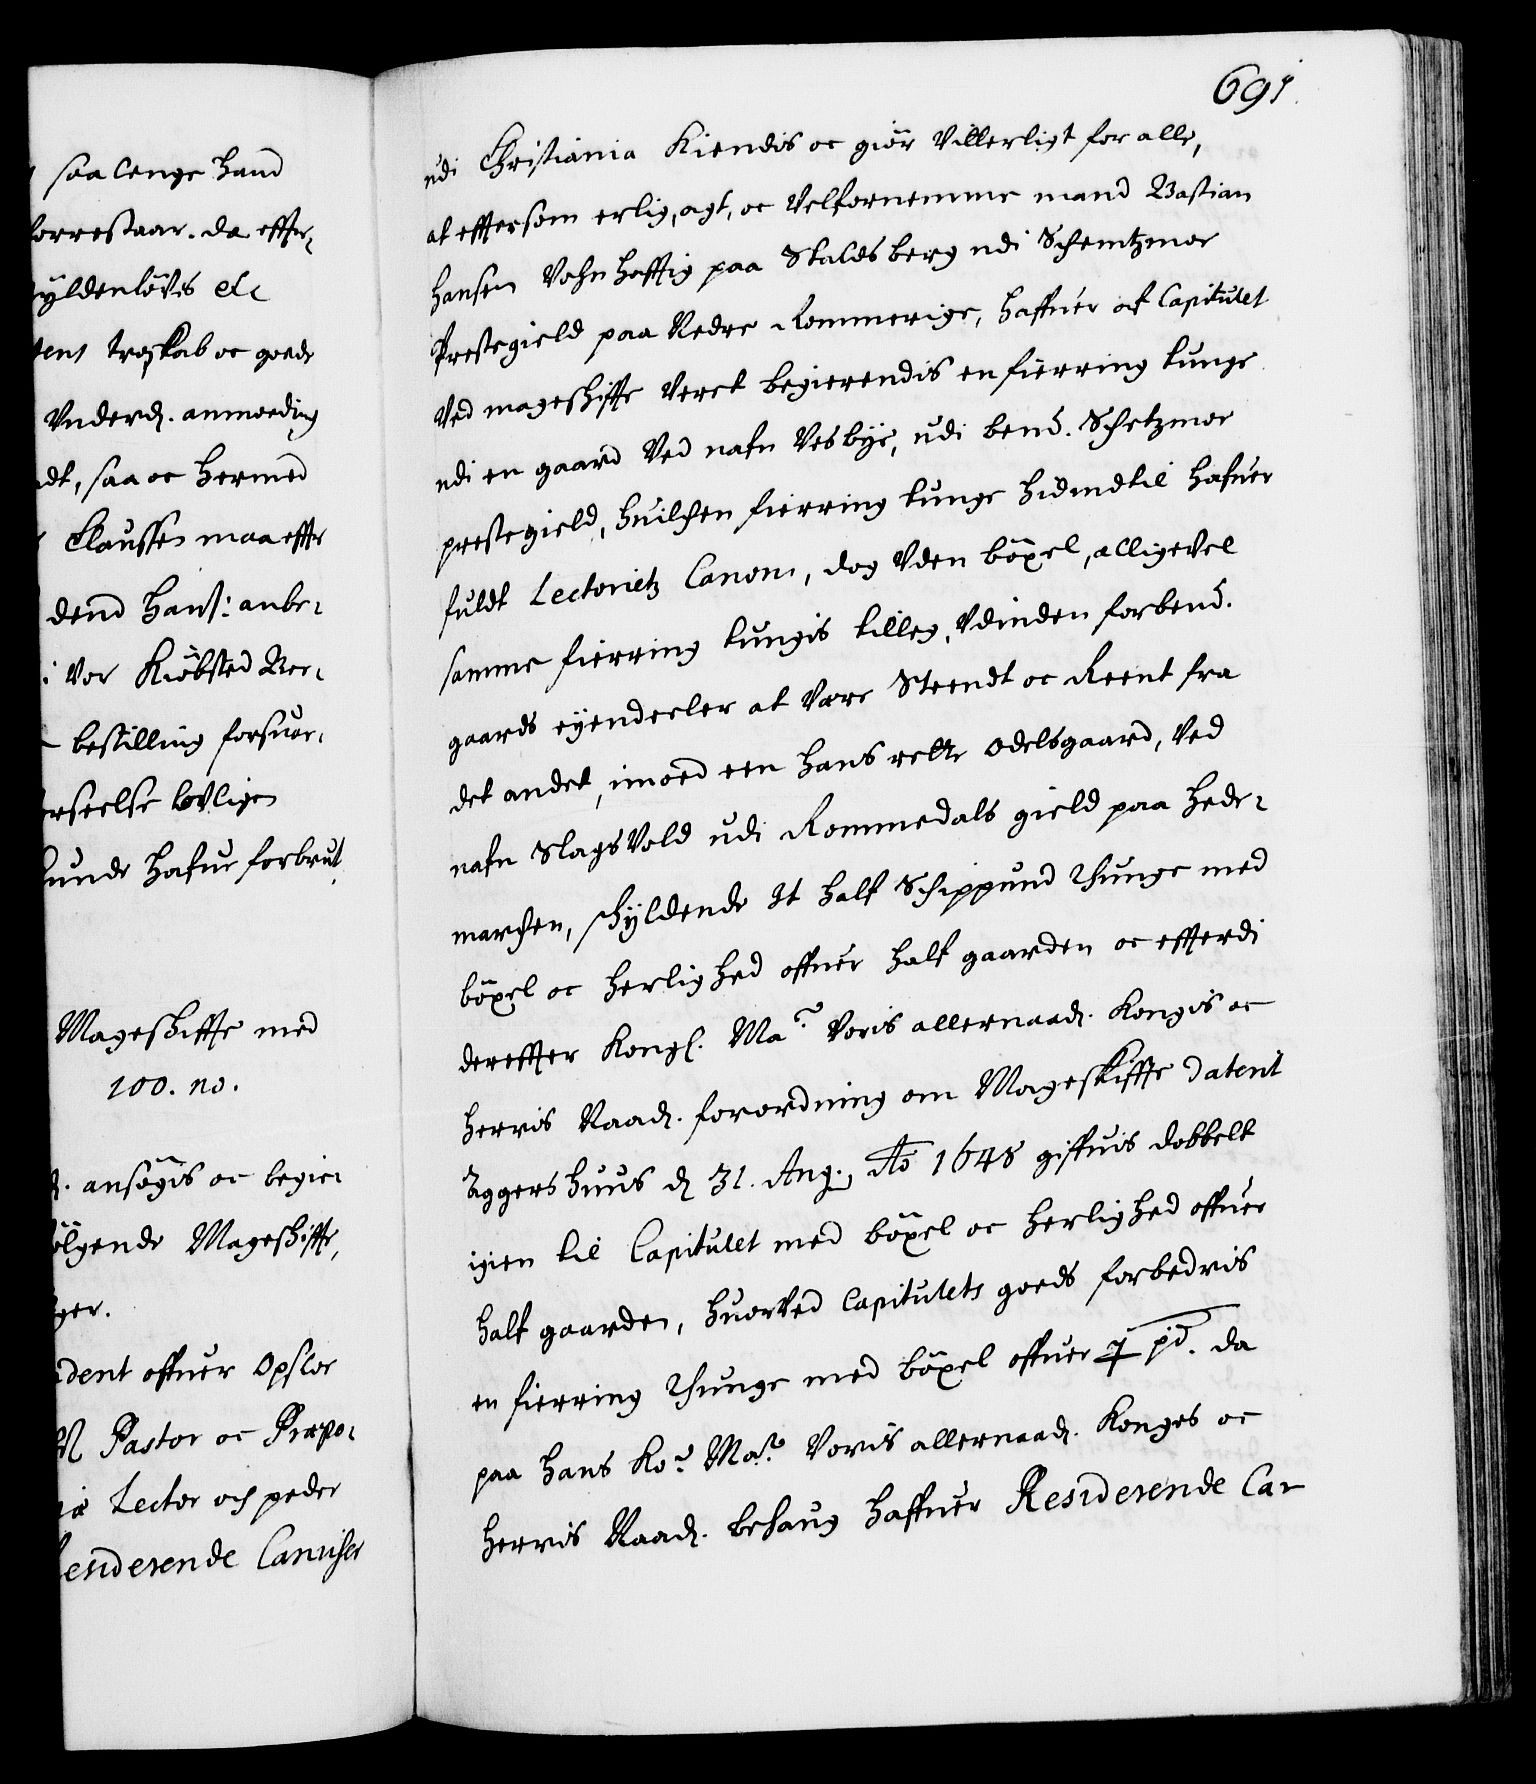 saa lenge hand
forrestaar. da effter¬
yldenløvis etc
tens troskab oc goede
Underd. anmoeding
dt, saa oc hermed
Claussen maa effter
dend hans: anbe¬
vor Kiøbsted Ber¬
bestilling forsuar¬
erseelse lovligen
kunde hafue forbrut
Mageskiffte med
100. no.
ansøgis oc begie¬
ølgende Mageskiffte,
ger.
dent offuer Opsloe
Pastor oc Præpo¬
Lector och peder
esiderende Caniker
691.
udi Christiania Kiendis oc giør Vitterligt for alle,
at effter som erlig, agt, oc Velfornemme mand Bastian
Hansen Vohnhafftig paa Skaldsberg udi Schemtzmoe
Prestegield paa Nedre Rommerige, haffuer af Capitulet
Ved mageskiffte veret begierendis en fierring tunge
udi en gaard Ved nafn Vesbye, udi bend. Schetzmoe
prestegield, huilchen fierring tunge hidindtil hafuer
fuldt Lectorietz Canoni, dog Uden bøxel, alligevel
samme fierring tungis tilleg, Udinden forbend.
gaards eyendeeler at Vere Steendt oc Reent fra
det andet, imoed een hans rette odelsgaard, Ved
nafn Slagsvold udi Rommedals gield paa Hede¬
marchen, schyldende It half Schippund Thunge med
bøxel oc herlighed offuer half gaarden oc effterdi
dereffter Kongl. Ma.t Voris allernaad. Kongis oc
Herris Naad. forordning om Mageskiffte Daterit
Aggershuus d 31. Aug. Ao 1648 giffuis dobbelt
igien til Capitulet med bøxel oc herlighed offuer
half gaarden, huorved Capitulets goeds forbedris
en fierring Thunge med bøxel offuer pd. da
paa hans Ko. Ma.ts Voris allernaad. Konges oc
Herris Naad. behaug haffuer Residerende Ca¬